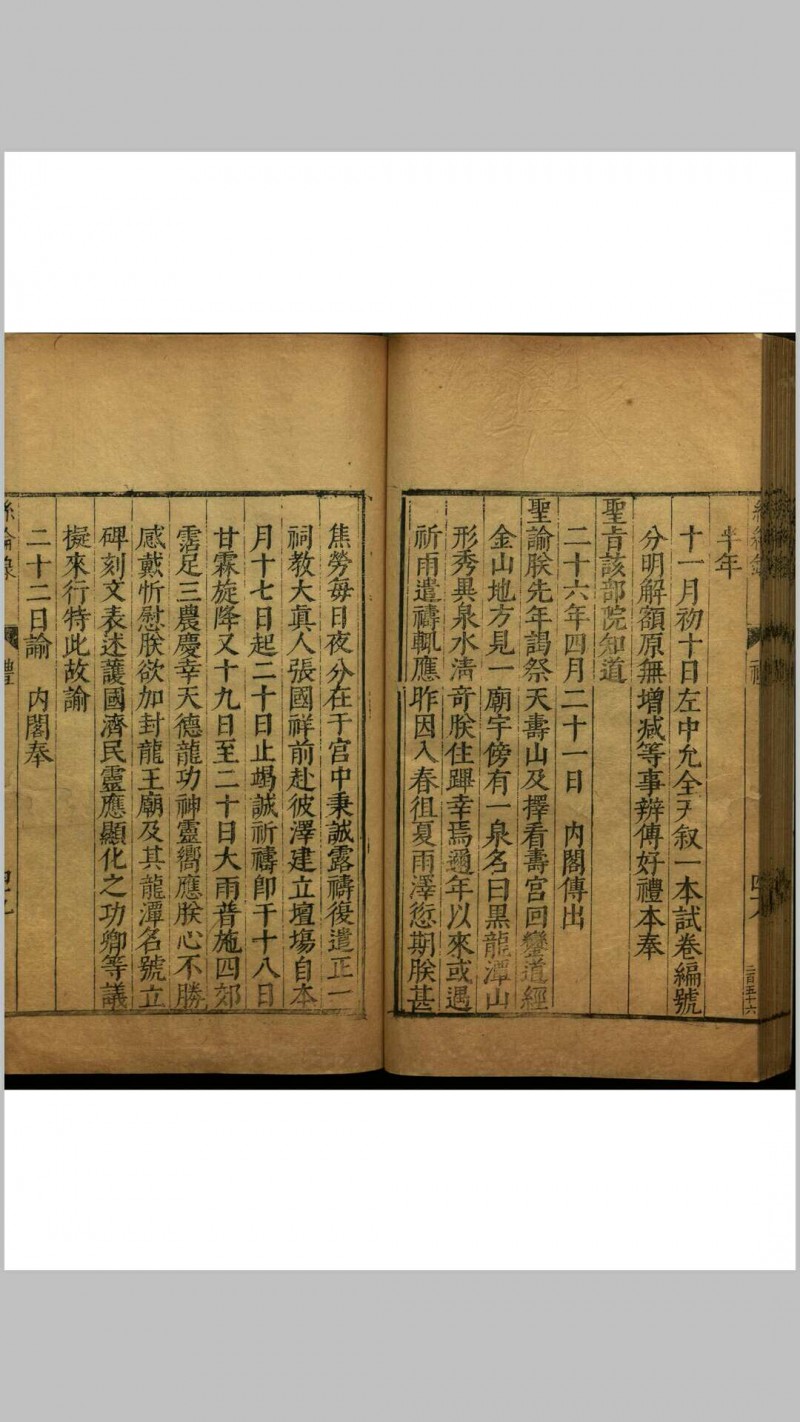 半年
十一月初十日左中允全天叙一本試卷編號
分明解額原無增减等事辨傅好禮本奉
聖旨該部院知道
二十六年四月二十一日　內閣傳出
聖諭朕先年謁祭天壽山及擇看壽宮回鑾道經
金山地方見一廟宇傍有一泉名曰黑龍潭山
形秀異泉水清奇朕住蹕幸焉邇年以來或遇
祈雨遣禱輒應昨因入春徂夏雨澤愆期朕甚
焦勞每日夜分在于宮中秉誠露禱復遣正一
祠教大真人張國祥前赴彼澤建立壇場自本
月十七日起二十日止竭誠祈禱卽于十八日
甘霖旋降又十九日至二十日大雨普施四郊
霑足三農慶幸天德龍功神靈嚮應朕心不勝
感戴忻慰朕欲加封龍王廟及其龍潭名號立
碑刻文表述護國濟民靈應顯化之功卿等議
擬來行特此故諭
二十二日諭　內閣奉
絲綸錄
禮
四九
二百五十六